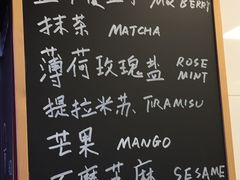 MR BERRY
抹茶 MATCHA
薄荷玫瑰盐 ROSE MINT
提拉米苏、TIRAMISU
芒果 MANGO
石磨芝麻 SESAME